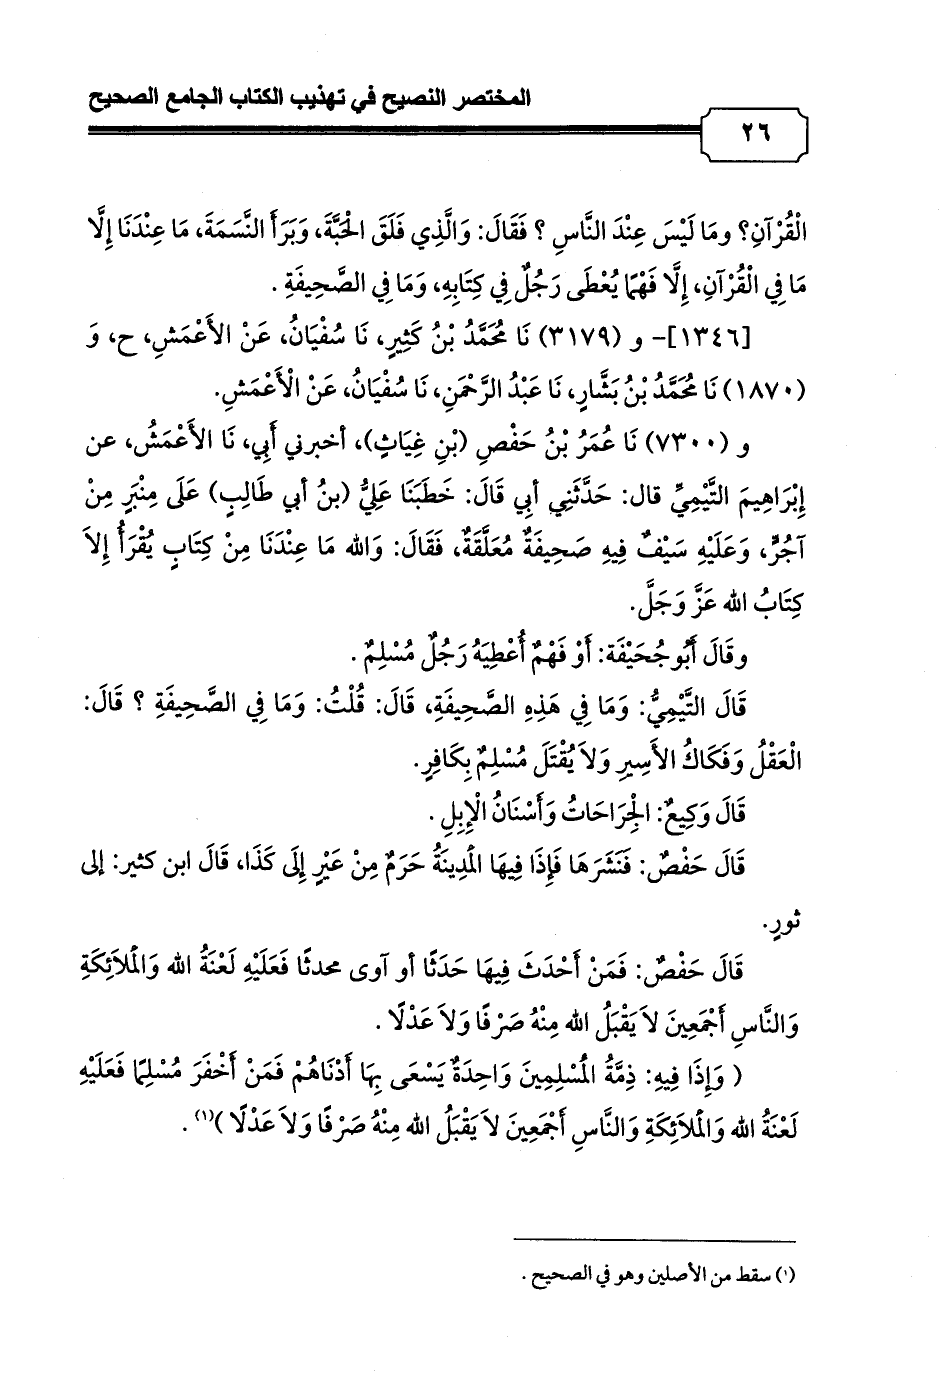 المختصر النصيح في تهذيب الكتاب الجامع الصحيح
٢٦
الْقُرْآنِ؟ ومَا لَيْسَ عِنْدَ النَّاسِ ؟ فَقَالَ: وَالَّذِي فَلَقَ الْحَبَّةَ، وَبَرَأَ النَّسَمَةَ، مَا عِنْدَنَا إِلَّا
مَا فِي الْقُرْآنِ، إِلَّا فَهْمًا يُعْطَى رَجُلٌ فِي كِتَابِهِ، وَمَا فِي الصَّحِيفَةِ .
[١٣٤٦]- و (٣١٧٩) نَا مُحَمَّدُ بْنُ كَثِيرٍ، نَا سُفْيَانُ، عَنْ الأَعْمَشِ، ح، وَ
(١٨٧٠) نَا مُحَمَّدُ بْنُ بَشَّارٍ، نَا عَبْدُ الرَّحْمَنِ، نَا سُفْيَانُ، عَنْ الْأَعْمَشِ.
و (٧٣٠٠) نَا عُمَرُ بْنُ حَفْصِ (بْنِ غِيَاثٍ)، أخبرني أَبِي، نَا الأَعْمَشُ، عن
إِبْرَاهِيمَ التَّيْمِيِّ قال: حَدَّثَنِي أبي قَالَ: خَطَبَنَا عَلِيُّ (بنُ أبي طَالِبٍ) عَلَى مِنْبَرٍ مِنْ
آجُرٍّ، وَعَلَيْهِ سَيْفٌ فِيهِ صَحِيفَةٌ مُعَلَّقَةٌ، فَقَالَ: وَالله مَا عِنْدَنَا مِنْ كِتَابٍ يُقْرَأُ إِلاَ
كِتَابُ الله عَزَّ وَجَلَّ.
وقَالَ أَبُو جُحَيْفَة: أَوْ فَهْمٌ أُعْطِيَهُ رَجُلٌ مُسْلِمٌ .
قَالَ التَّيْمِيُّ: وَمَا فِي هَذِهِ الصَّحِيفَةِ، قَالَ: قُلْتُ: وَمَا فِي الصَّحِيفَةِ ؟ قَالَ:
الْعَقْلُ وَفَكَاكُ الأَسِيرِ وَلاَ يُقْتَلَ مُسْلِمٌ بِكَافِرٍ.
قَالَ وَكِيعٌ: الْجِرَاحَاتُ وَأَسْنَانُ الْإِبِلِ .
قَالَ حَفْصٌ: فَنَشَرَهَا فَإِذَا فِيهَا الْمَدِينَةُ حَرَمٌ مِنْ عَيْرٍ إِلَى كَذَا، قَالَ ابن كثير: إلى
ثورٍ.
قَالَ حَفْصٌ: فَمَنْ أَحْدَثَ فِيهَا حَدَثًا أو آوى محدثًا فَعَلَيْهِ لَعْنَةُ الله وَالْمَلاَئِكَةِ
وَالنَّاسِ أَجْمَعِينَ لاَ يَقْبَلُ الله مِنْهُ صَرْفًا وَلاَ عَدْلًا .
( وَإِذَا فِيهِ: ذِمَّةُ الْمُسْلِمِينَ وَاحِدَةٌ يَسْعَى بِهَا أَدْنَاهُمْ فَمَنْ أَخْفَرَ مُسْلِمًا فَعَلَيْهِ
لَعْنَةُ الله وَالْمَلاَئِكَةِ وَالنَّاسِ أَجْمَعِينَ لاَ يَقْبَلُ الله مِنْهُ صَرْفًا وَلاَ عَدْلًا )(١) .
(١) سقط من الأصلين وهو في الصحيح .